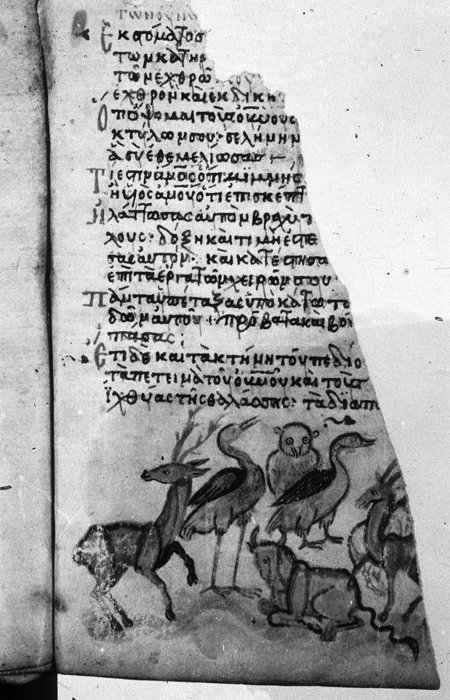 τῶν οὐνῶ
Ἐκ στόματος
των κατηρ
τῶν ἐχθρῶ
ἐχθρὸν καὶ ἐκδικη
Ὅτι ὄψομαι τοὺς οὐνους
κτύλων σου· σελήνην
ἃ σὺ ἐθεμελίωσας
Τί ἐστιν ἄνος ὅτι μιμνησ
ἢ υἱὸς ἀνου ὅτι ἐπισκέπτ
Ἠλάττωσας αὐτὸν βραχύ τ
λους· δόξη καὶ τιμῆ ἐστε
σας αὐτόν· καὶ κατέστησα
ἐπὶ τὰ ἔργα τῶν χειρῶν σου
Πάντα ὑπέταξας ὑποκάτω το
δῶν αὐτοῦ· πρόβατα καὶ βοί
πάσας·
Ἔτι δὲ καὶ τὰ κτήνη τοῦ πεδίο
τὰ πετεινὰ τοῦ οὐνου καὶ τοὺς
ἰχθύας τῆς θαλάσσης· τὰ διαπ